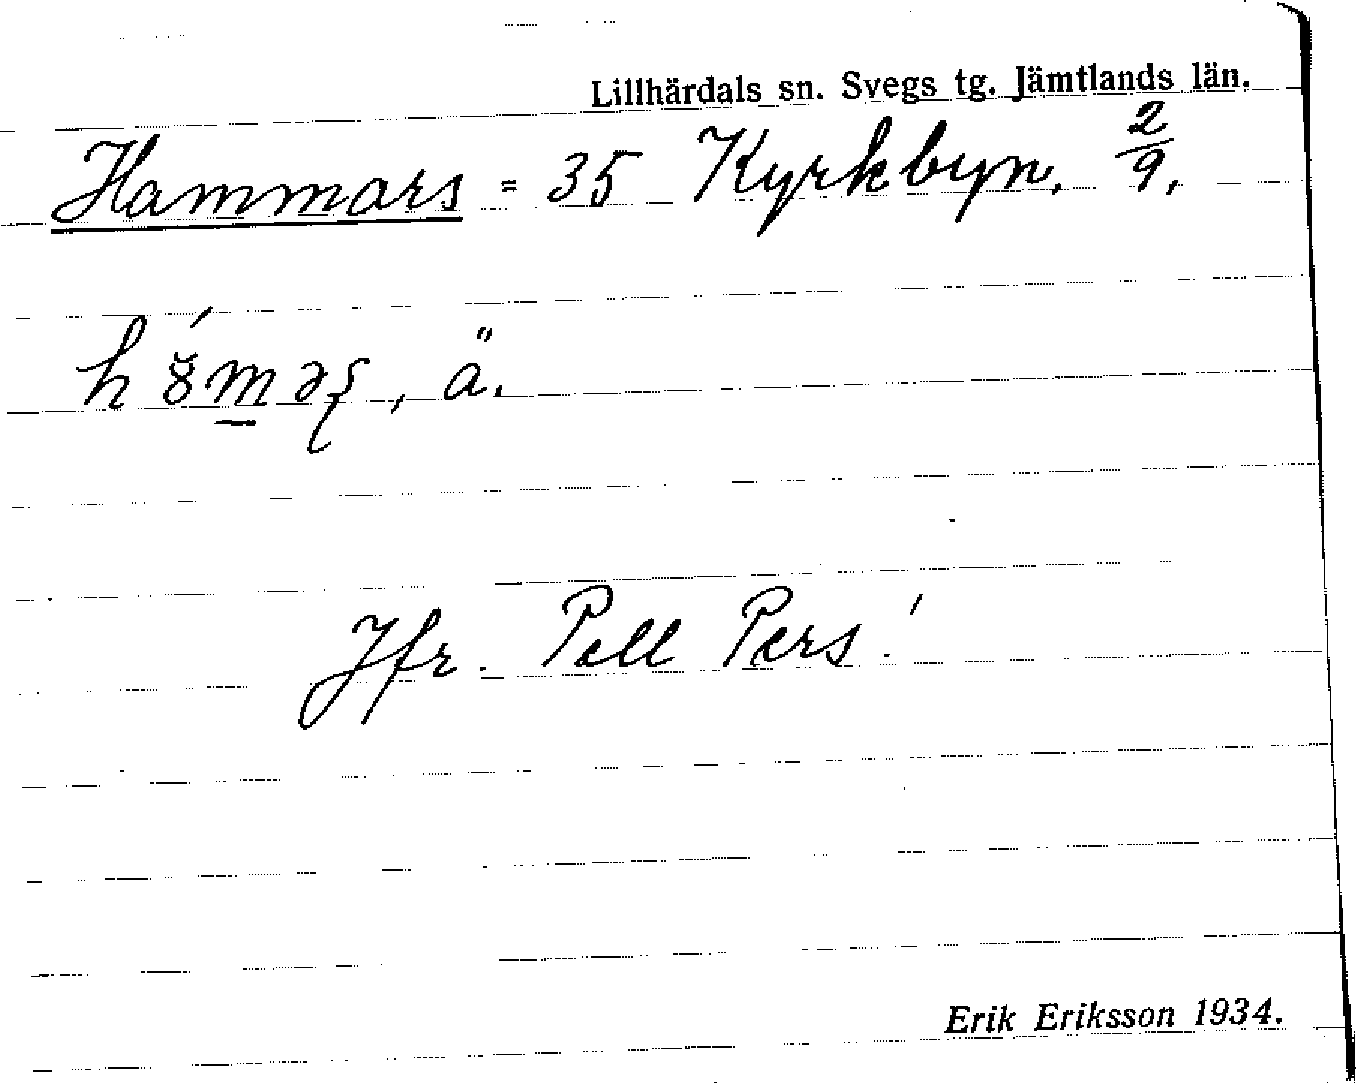 Lillhärdals sn. Svegs tg. Jämtlands län.
Hammars = 35 Kyrkbyn. 2/9.
ä.
Jfr. Pell Pers!
Erik Eriksson 1934.